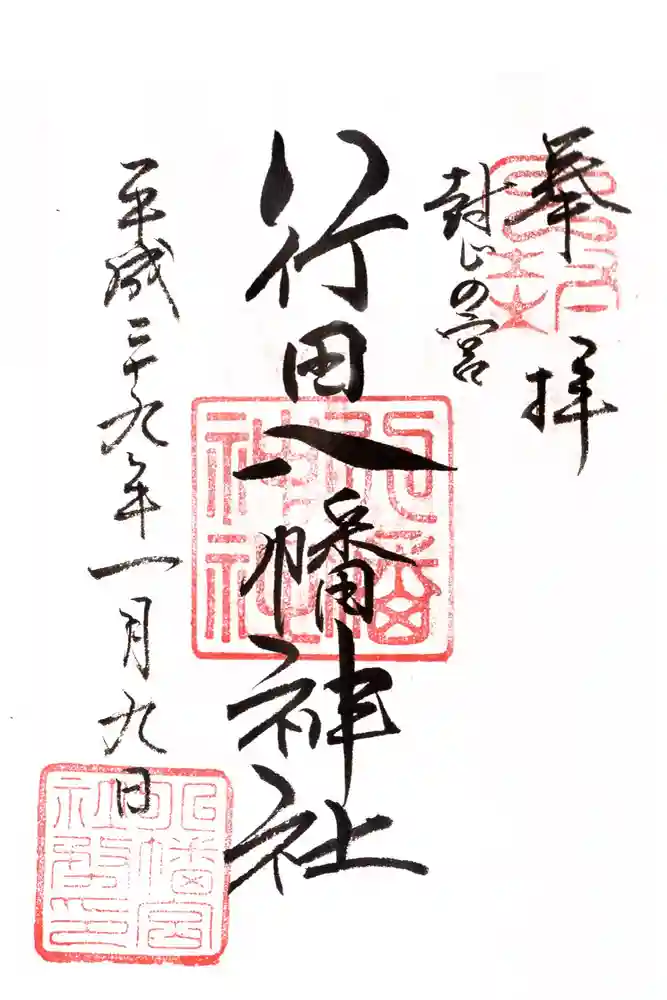 奉拝
封じの宮
行田八幡神社
平成二十九年一月九日
八幡
神社